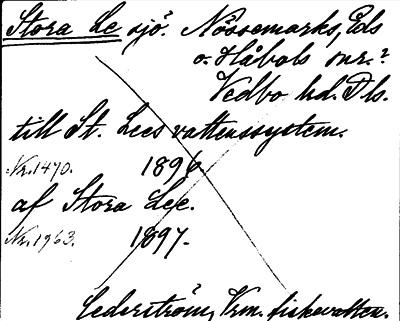 Stora Le sjö. Nössemarks, Eds
o. Håbols snr.
Vedbo hd. Dls.
till St. Lees vattensystem.
Nr. 1470. 1896.
af Stora Lee.
Nr. 1963. 1897.
Cederström, Vrm. fiskevatten.